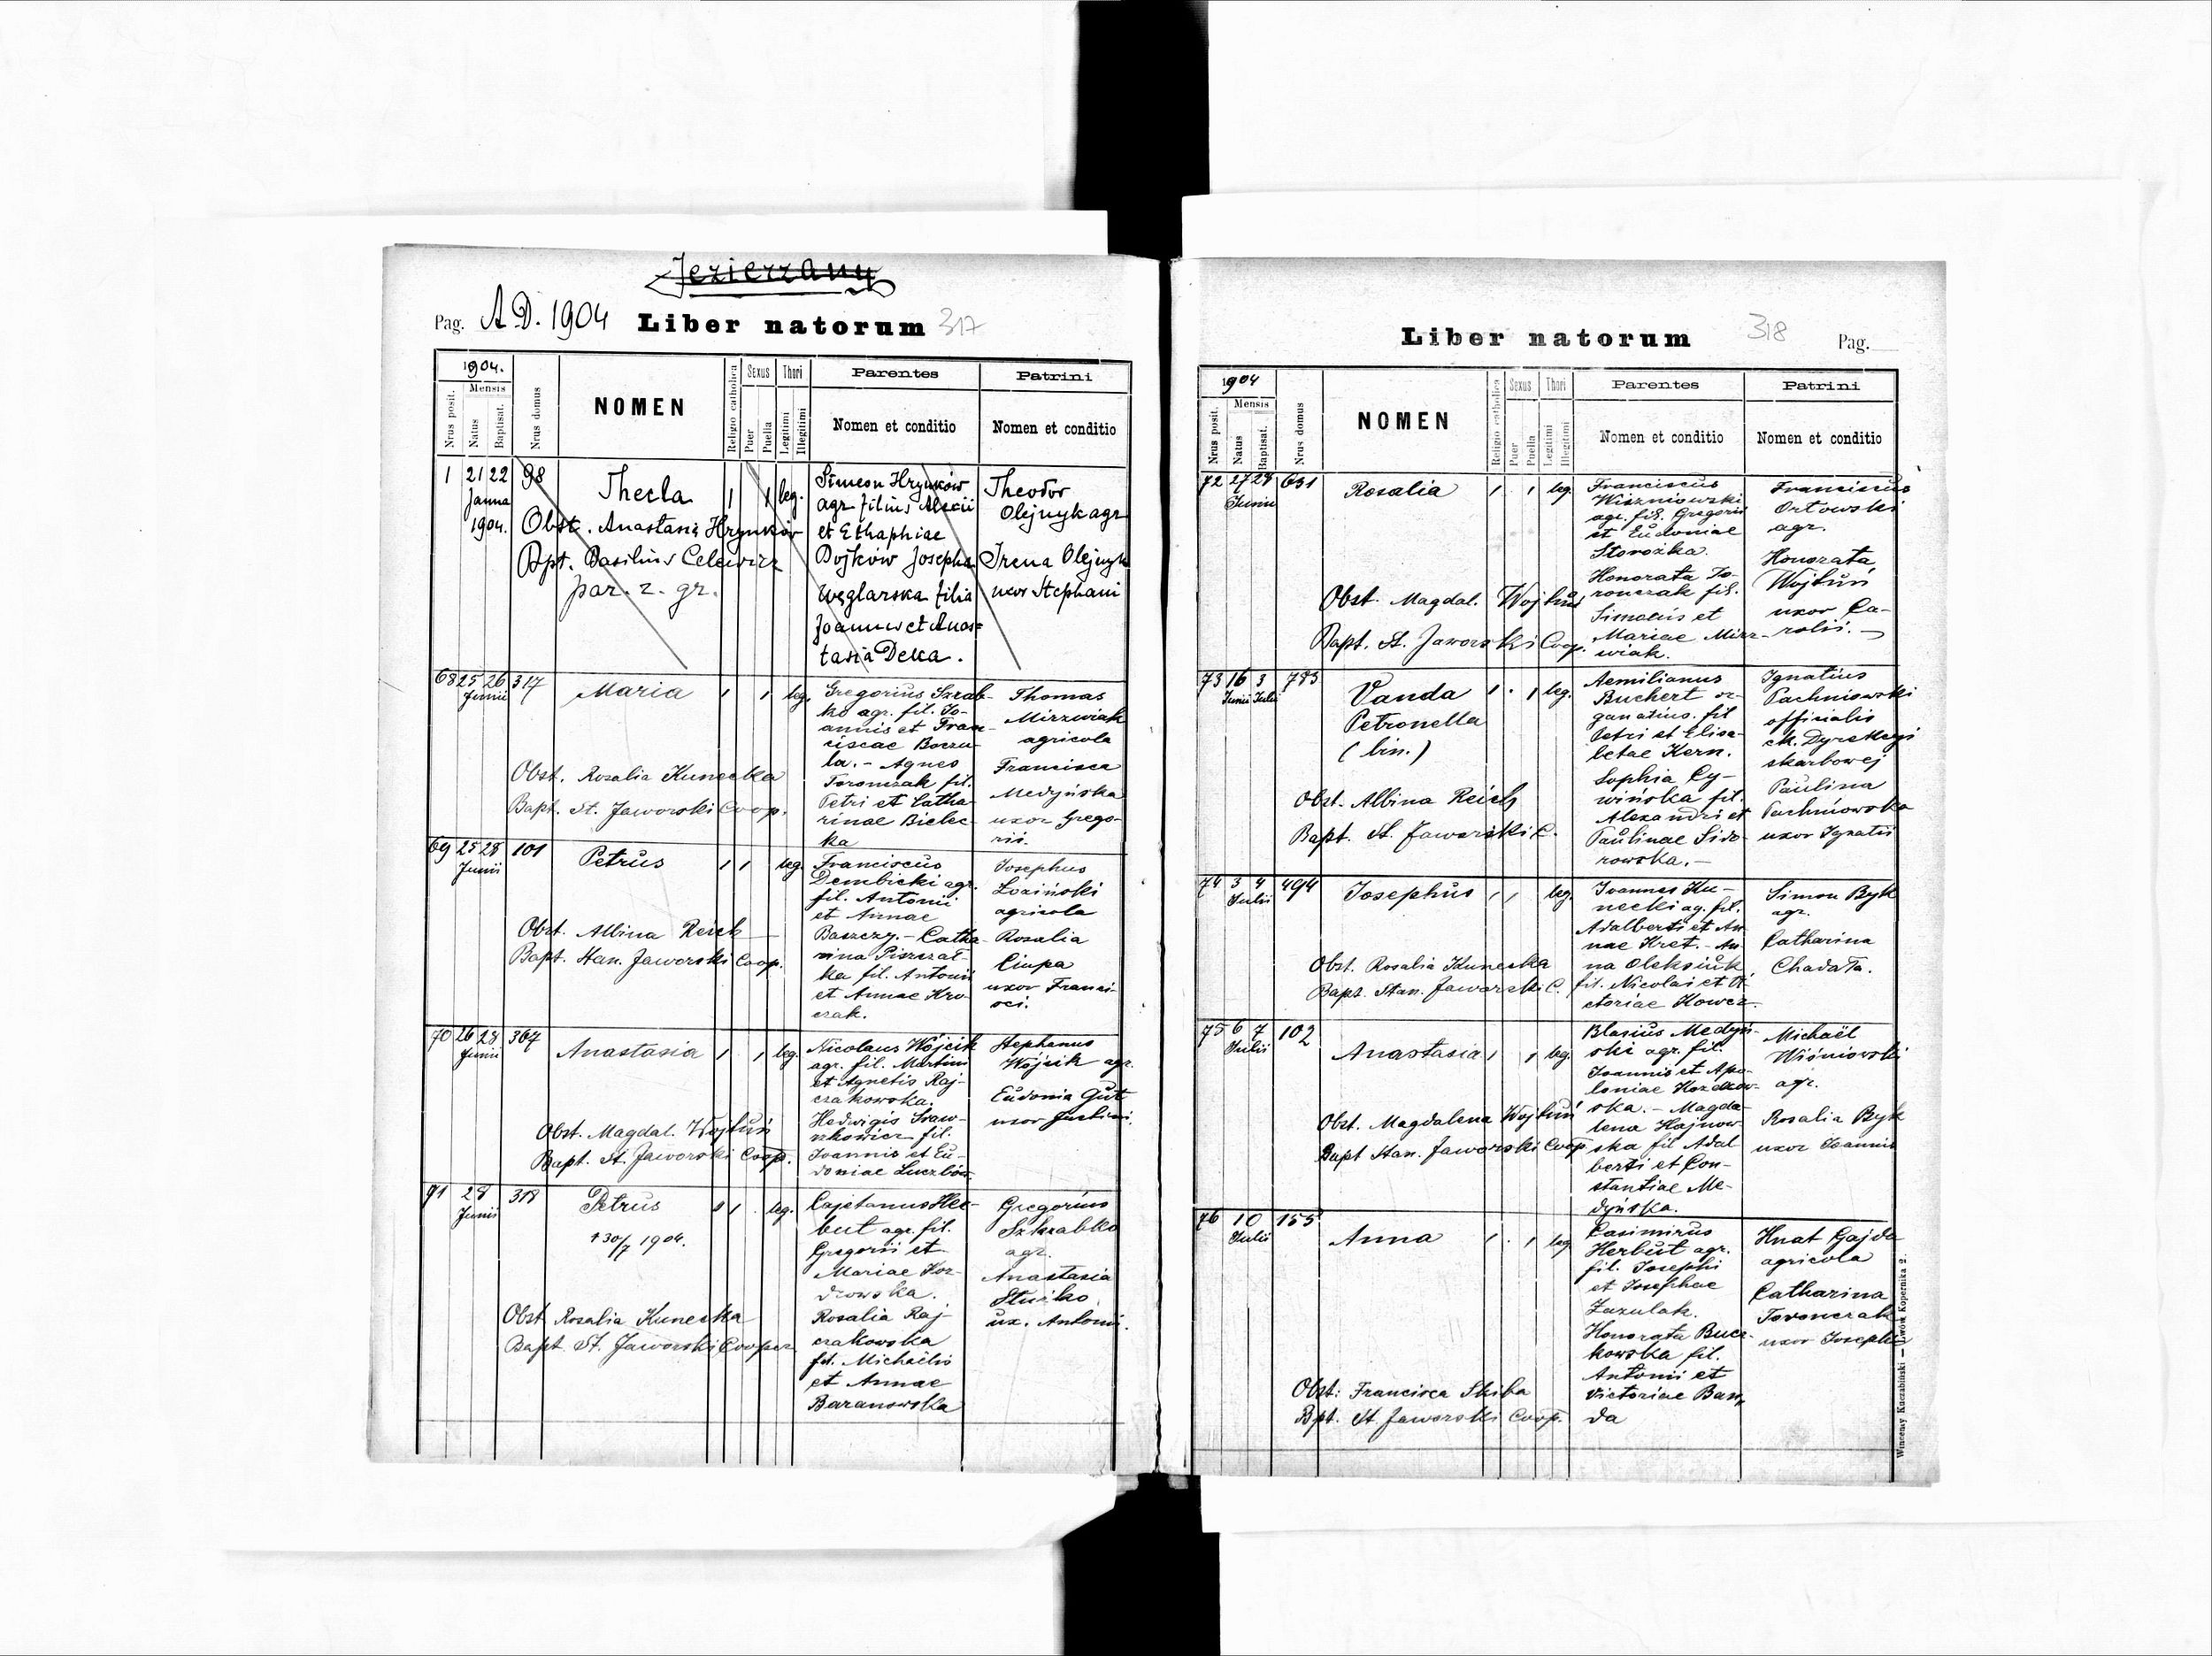 Jezierzany
Pag. A.D. 1904 Liber natorum 317
1904.
Mensis
Nrus posit.
Natus
Baptisat.
Nrus domus
NOMEN
Religio catholica
Sexus
Puer
Puella
Thori
Legitimi
Illegitimi
Parentes
Nomen et conditio
Patrini
Nomen et conditio
1 21 22 98
Janua
1904.
Thecla 1 1 leg.
Obst. Anastasia Hrynków
Bpt. Basilius Celewicz
par. r. gr.
Simeon Hrynków
agr. filius Alexii
et Ethaphiae
Bojków Josepha
Węglarska filia
Joannis et Anas=
tasia Deka.
Theodor
Olejnyk agr
Irena Olejnyk
uxor Stephani
68 25 26 317
Junii
Maria 1 1 leg.
Obst. Rosalia Kunecka
Bapt. St. Jaworski Coop.
Gregorius Szrab-
ko agr. fil. Jo-
annis et Fran-
ciscae Boczu-
la. - Agnes
Toronczak fil.
Petri et Catha
rinae Bielec-
ka
Thomas
Mizzwiak
agricola
Francisca
Medyńska
uxor Grego-
rii.
69 25 28 101
Junii
Petrus 1 1 leg.
Obst. Albina Reich
Bapt. Stan. Jaworski Coop.
Franciscus
Dembicki agr.
fil. Antonii
et Annae
Baszczy. - Catha-
rina Piszczat-
ka fil. Antonii
et Annae Kro-
czak.
Josephus
Łoziński
agricola
Rosalia
Ciupa
uxor Franci-
sci.
70 26 28 367
Junii
Anastasia 1 1 leg.
Obst. Magdal. Wojtuń
Bapt. St. Jaworski Coop.
Nicolaus Wójcik
agr. fil. Martini
et Agnetis Raj-
czakowska.
Hedwigis
fil.
Joannis et Eu-
doniae
Stephanus
Wójcik agr.
Eudonia Gut
uxor
71 28 318
Junii
Petrus 1 leg.
+ 30/7 1904.
Obst Rosalia Kunecka
Bapt. St. Jaworski Cooper
Cajetanus Her-
but agr. fil.
Gregorii et
Mariae Koz-
drowska.
Rosalia Raj-
czakowska
fil. Michaëlis
et Annae
Baranowska
Gregorius
Szkrabko
agr.
Anastasia
ux. Antonii.
Liber natorum 318 Pag.
1904
Mensis
Nrus posit.
Natus
Baptisat.
Nrus domus
NOMEN
Religio catholica
Sexus
Puer
Puella
Thori
Legitimi
Illegitimi
Parentes
Nomen et conditio
Patrini
Nomen et conditio
72 27 28 631
Junii
Rosalia 1 1 leg.
Obst. Magdal. Wojtuń
Bapt. St. Jaworski Coop.
Franciscus
Wiszniowski
agr. fil. Gregorii
et Eudoniae
Storożka.
Honorata To-
ronczak fil.
Simonis et
Mariae Mizz-
wiak.
Franciscus
Ortowski
agr.
Honorata
Wojtuń
uxor Ca-
rolii. —
73 16 3 783
Junii Julii
Vanda 1 . 1 leg.
Petronella
(bin.)
Obst. Albina Reich
Bapt. St. Jaworski C.
Aemilianus
Buchert or-
ganarius. fil
Petri et Elisa-
betae Kern.
Sophia Cy-
wińska fil.
Alexandri et
Paulinae Sido-
rowska. —
Ignatius
Pachniowski
officialis
ck. Dyrekcyi
skarbowej
Paulina
Pachniowska
uxor Ignatii
74 3 4 494
Julii
Josephus 1 1 leg.
Obst. Rosalia Kunecka
Bapt. Stan. Jaworski C.
Joannes Ku-
necki ag. fil.
Adalberti et An
nae Kret. - An-
na Oleksiuk
fil. Nicolai et Vi-
ctoriae Howcz.
Simon Byk
agr.
Catharina
Chadała.
75 6 7 102
Julii
Anastasia 1 1 leg.
Obst. Magdalena Wojtuń
Bapt Stan. Jaworski Coop.
Blasius Medyń-
ski agr. fil.
Joannis et Apo-
loniae
ska. - Magda-
lena Hajnow-
ska fil Adal
berti et Con-
stantiae Me-
dyńska.
Michaël
Wiśniowski
agr.
Rosalia Byk
uxor Joannis
76 10 155
Julii
Anna 1 . 1 leg
Obst: Francisca Skiba
Bpt. St. Jaworski Coop.
Casimirus
Herbut agr.
fil. Josephi
et Josephae
Zazulak.
Honorata Bucz-
kowska fil.
Antonii et
Victoriae Ban,
da
Hnat Gajda
agricola
Catharina
Toronczak
uxor Josephi
Wincenty Kuczabiński — Lwów Kopernika 2.